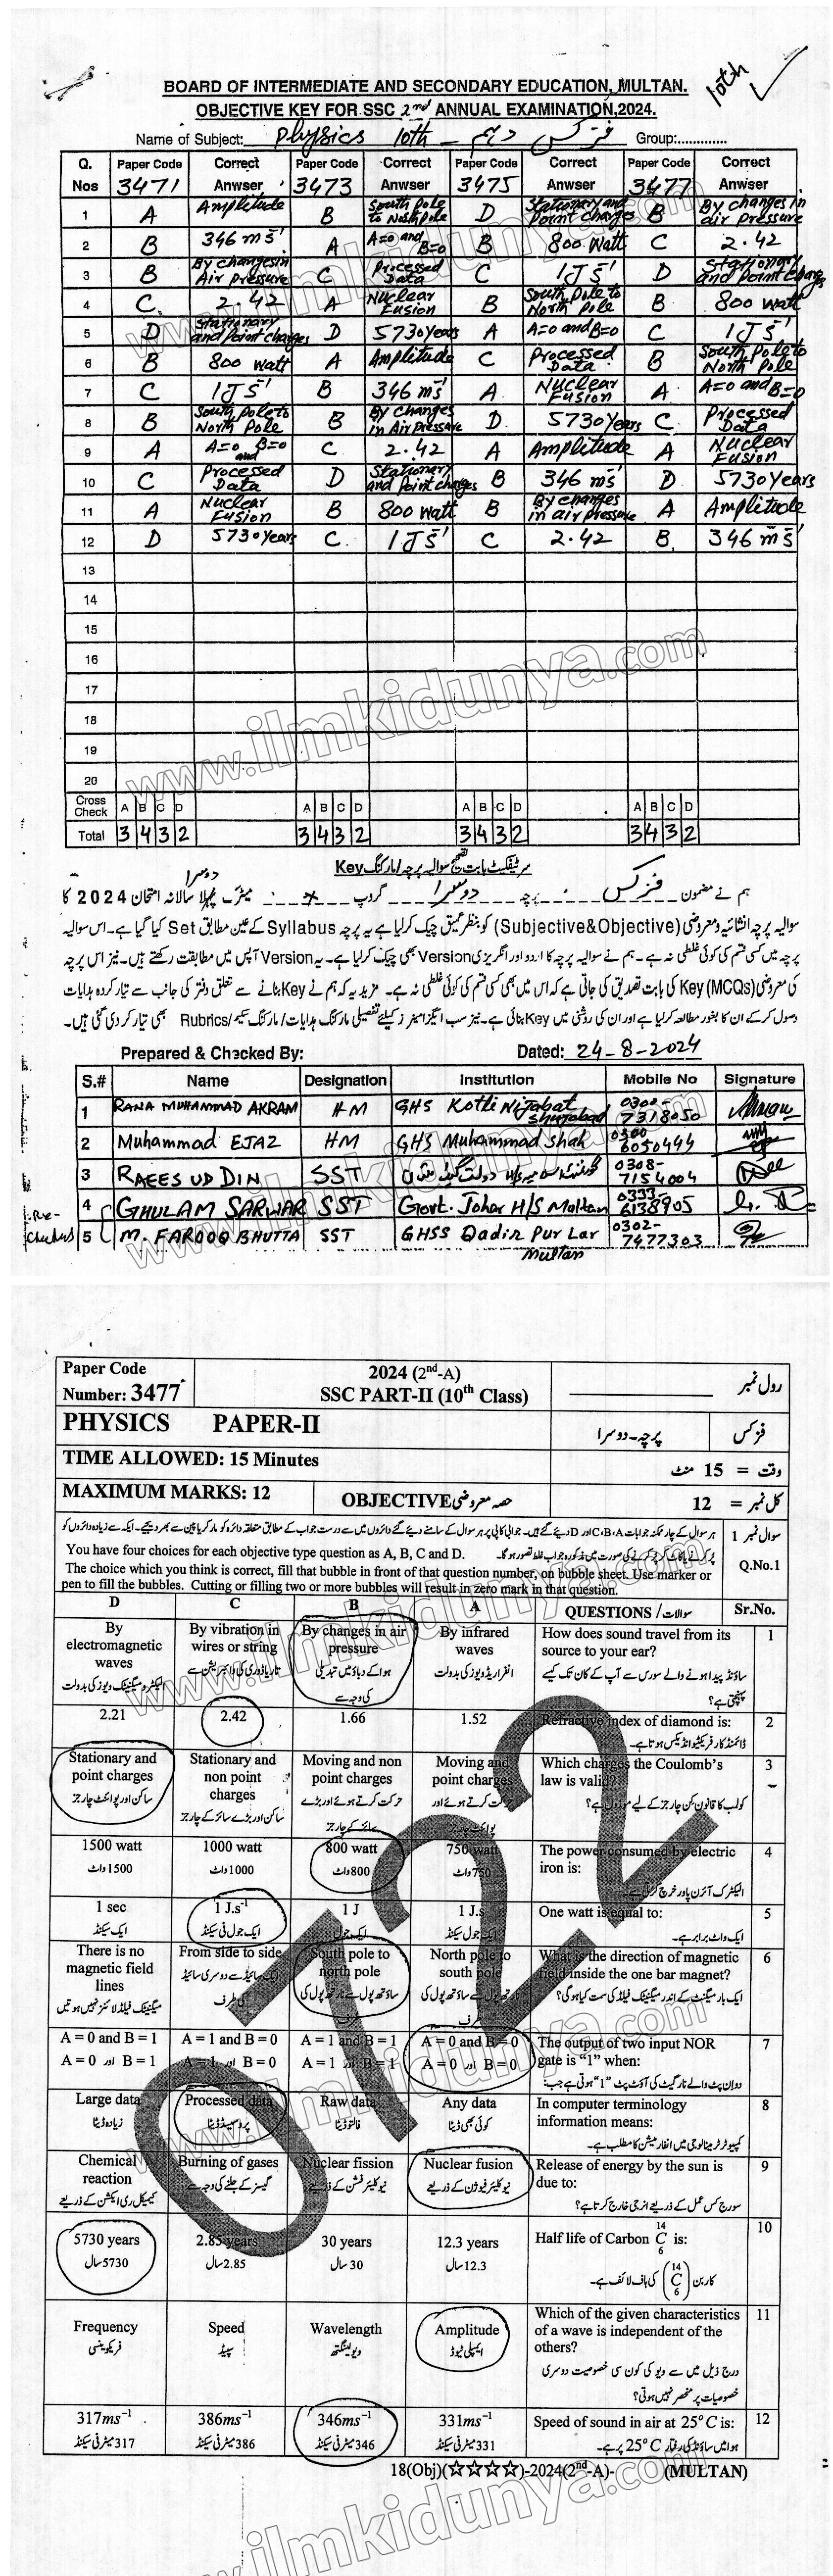 10th
BOARD OF INTERMEDIATE AND SECONDARY EDUCATION, MULTAN.
OBJECTIVE KEY FOR SSC 2nd ANNUAL EXAMINATION, 2024.
Name of Subject: Physics 10th - فزکس دہم Group:.............
Q. Nos Paper Code 3471 Correct Anwser Paper Code 3473 Correct Anwser Paper Code 3475 Correct Anwser Paper Code 3477 Correct Anwser
1 A Amplitude B South Pole to North pole D Stationary and Point Charges B By changes in air pressure
2 B 346 ms⁻¹ A A=0 and B=0 B 800 Watt C 2.42
3 B By changes in Air Pressure C Processed Data C 1 J s⁻¹ D Stationary and Point charges
4 C. 2.42 A Nuclear Fusion B South Pole to North Pole B 800 watt
5 D Stationary and Point charges D 5730 years A A=0 and B=0 C 1 J s⁻¹
6 B 800 watt A Amplitude C Processed Data B South Pole to North Pole
7 C 1 J s⁻¹ B 346 ms⁻¹ A Nuclear Fusion A A=0 and B=0
8 B South Pole to North Pole B By Changes in Air Pressure D 5730 Years C Processed Data
9 A A=0 and B=0 C 2.42 A Amplitude A Nuclear Fusion
10 C Processed Data D Stationary and Point charges B 346 ms⁻¹ D 5730 Years
11 A Nuclear Fusion B 800 watt B By changes in air pressure A Amplitude
12 D 5730 Years C. 1 J s⁻¹ C 2.42 B. 346 ms⁻¹
13
14
15
16
17
18
19
20
Cross Check A B C D A B C D A B C D A B C D
Total 3 4 3 2 3 4 3 2 3 4 3 2 3 4 3 2
سرٹیفکیٹ بابت تصحیح سوالیہ پرچہ/مارکنگ Key
دوسرا
ہم نے مضمون فزکس پرچہ دوسرا گروپ × میٹرک پہلا سالانہ امتحان 2024 کا
سوالیہ پرچہ انشائیہ ومعروضی (Subjective&Objective) کو بنظر عمیق چیک کر لیا ہے یہ پرچہ Syllabus کے عین مطابق Set کیا گیا ہے۔ اس سوالیہ
پرچہ میں کسی قسم کی کوئی غلطی نہ ہے۔ ہم نے سوالیہ پرچہ کا اردو اور انگریزی Version بھی چیک کر لیا ہے۔ یہ Version آپس میں مطابقت رکھتے ہیں۔ نیز اس پرچہ
کی معروضی (MCQs) Key کی بابت تصدیق کی جاتی ہے کہ اس میں بھی کسی قسم کی کوئی غلطی نہ ہے۔ مزید یہ کہ ہم نے Key بنانے سے متعلق دفتر کی جانب سے تیار کردہ ہدایات
وصول کر کے ان کا بغور مطالعہ کر لیا ہے اور ان کی روشنی میں Key بنائی ہے۔ نیز سب ایگزامینرز کیلئے تفصیلی مارکنگ ہدایات/مارکنگ سکیم/Rubrics بھی تیار کر دی گئی ہیں۔
Prepared & Checked By: Dated: 24-8-2024
S.# Name Designation Institution Mobile No Signature
1 RANA MUHAMMAD AKRAM HM GHS Kotli Nijabat Shujabad 0300-7318050
2 Muhammad EJAZ HM GHS Muhammad Shah 0300 6050444
3 RAEES UD DIN SST 0308-7154004
4 GHULAM SARWAR SST Govt. Johar H/S Multan 0333-6138905
Re-Checked 5 M. FAROOQ BHUTTA SST GHSS Qadir Pur Lar Multan 0302-7477303
Paper Code Number: 3477 2024 (2nd-A) SSC PART-II (10th Class) رول نمبر
PHYSICS PAPER-II پرچہ۔دوسرا فزکس
TIME ALLOWED: 15 Minutes وقت = 15 منٹ
MAXIMUM MARKS: 12 OBJECTIVE حصہ معروضی کل نمبر = 12
سوال نمبر 1 ہر سوال کے چار ممکنہ جوابات C،B،A اور D دیئے گئے ہیں۔ جوابی کاپی پر ہر سوال کے سامنے دیئے گئے دائروں میں سے درست جواب کے مطابق متعلقہ دائرہ کو مارکر یا پین سے بھر دیجیے۔ ایک سے زیادہ دائروں کو
پر کرنے یا کاٹ کر پر کرنے کی صورت میں مذکورہ جواب غلط تصور ہوگا۔
Q.No.1 You have four choices for each objective type question as A, B, C and D.
The choice which you think is correct, fill that bubble in front of that question number, on bubble sheet. Use marker or
pen to fill the bubbles. Cutting or filling two or more bubbles will result in zero mark in that question.
D C B A QUESTIONS / سوالات Sr.No.
By electromagnetic waves By vibration in wires or string By changes in air pressure By infrared waves How does sound travel from its source to your ear? 1
الیکٹرومیگنیٹک ویوز کی بدولت تار یا ڈوری کی وائبریشن سے ہوا کے دباؤ میں تبدیلی کی وجہ سے انفراریڈ ویوز کی بدولت ساؤنڈ پیدا ہونے والے سورس سے آپ کے کان تک کیسے پہنچتی ہے؟
2.21 2.42 1.66 1.52 Refractive index of diamond is: 2
ڈائمنڈ کا ریفریکٹو انڈیکس ہوتا ہے۔
Stationary and point charges Stationary and non point charges Moving and non point charges Moving and point charges Which charges the Coulomb's law is valid? 3
ساکن اور پوائنٹ چارجز ساکن اور بڑے سائز کے چارجز حرکت کرتے ہوئے اور بڑے سائز کے چارجز حرکت کرتے ہوئے اور پوائنٹ چارجز کولمب کا قانون کن چارجز کے لیے موزوں ہے؟
1500 watt 1000 watt 800 watt 750 watt The power consumed by electric iron is: 4
1500واٹ 1000واٹ 800واٹ 750واٹ الیکٹرک آئرن پاور خرچ کرتی ہے۔
1 sec 1 J.s⁻¹ 1 J 1 J.s One watt is equal to: 5
ایک سیکنڈ ایک جول فی سیکنڈ ایک جول ایک جول سیکنڈ ایک واٹ برابر ہے۔
There is no magnetic field lines From side to side South pole to north pole North pole to south pole What is the direction of magnetic field inside the one bar magnet? 6
میگنیٹک فیلڈ لائنز نہیں ہوتیں ایک سائیڈ سے دوسری سائیڈ کی طرف ساؤتھ پول سے نارتھ پول کی طرف نارتھ پول سے ساؤتھ پول کی طرف ایک بار میگنٹ کے اندر میگنیٹک فیلڈ کی سمت کیا ہوگی؟
A = 0 and B = 1 A = 1 and B = 0 A = 1 and B = 1 A = 0 and B = 0 The output of two input NOR gate is “1” when: 7
A = 0 اور B = 1 A = 1 اور B = 0 A = 1 اور B = 1 A = 0 اور B = 0 دو ان پٹ والے نار گیٹ کی آؤٹ پٹ "1" ہوتی ہے جب:
Large data Processed data Raw data Any data In computer terminology information means: 8
زیادہ ڈیٹا پروسیسڈ ڈیٹا فالتو ڈیٹا کوئی بھی ڈیٹا کمپیوٹر ٹرمینالوجی میں انفارمیشن کا مطلب ہے۔
Chemical reaction Burning of gases Nuclear fission Nuclear fusion Release of energy by the sun is due to: 9
کیمیکل ری ایکشن کے ذریعے گیسز کے جلنے کی وجہ سے نیوکلیئر فشن کے ذریعے نیوکلیئر فیوژن کے ذریعے سورج کس عمل کے ذریعے انرجی خارج کرتا ہے؟
5730 years 2.85 years 30 years 12.3 years Half life of Carbon ¹⁴₆C is: 10
5730سال 2.85سال 30سال 12.3سال کاربن (¹⁴₆C) کی ہاف لائف ہے۔
Frequency Speed Wavelength Amplitude Which of the given characteristics of a wave is independent of the others? 11
فریکوئنسی سپیڈ ویولینگتھ ایمپلی ٹیوڈ درج ذیل میں سے ویو کی کون سی خصوصیت دوسری خصوصیات پر منحصر نہیں ہوتی؟
317ms⁻¹ 386ms⁻¹ 346ms⁻¹ 331ms⁻¹ Speed of sound in air at 25°C is: 12
317میٹر فی سیکنڈ 386میٹر فی سیکنڈ 346میٹر فی سیکنڈ 331میٹر فی سیکنڈ ہوا میں ساؤنڈ کی رفتار 25°C پر ہے۔
18(Obj)(☆☆☆☆)-2024(2nd-A)- (MULTAN)
0122
www.ilmkidunya.com